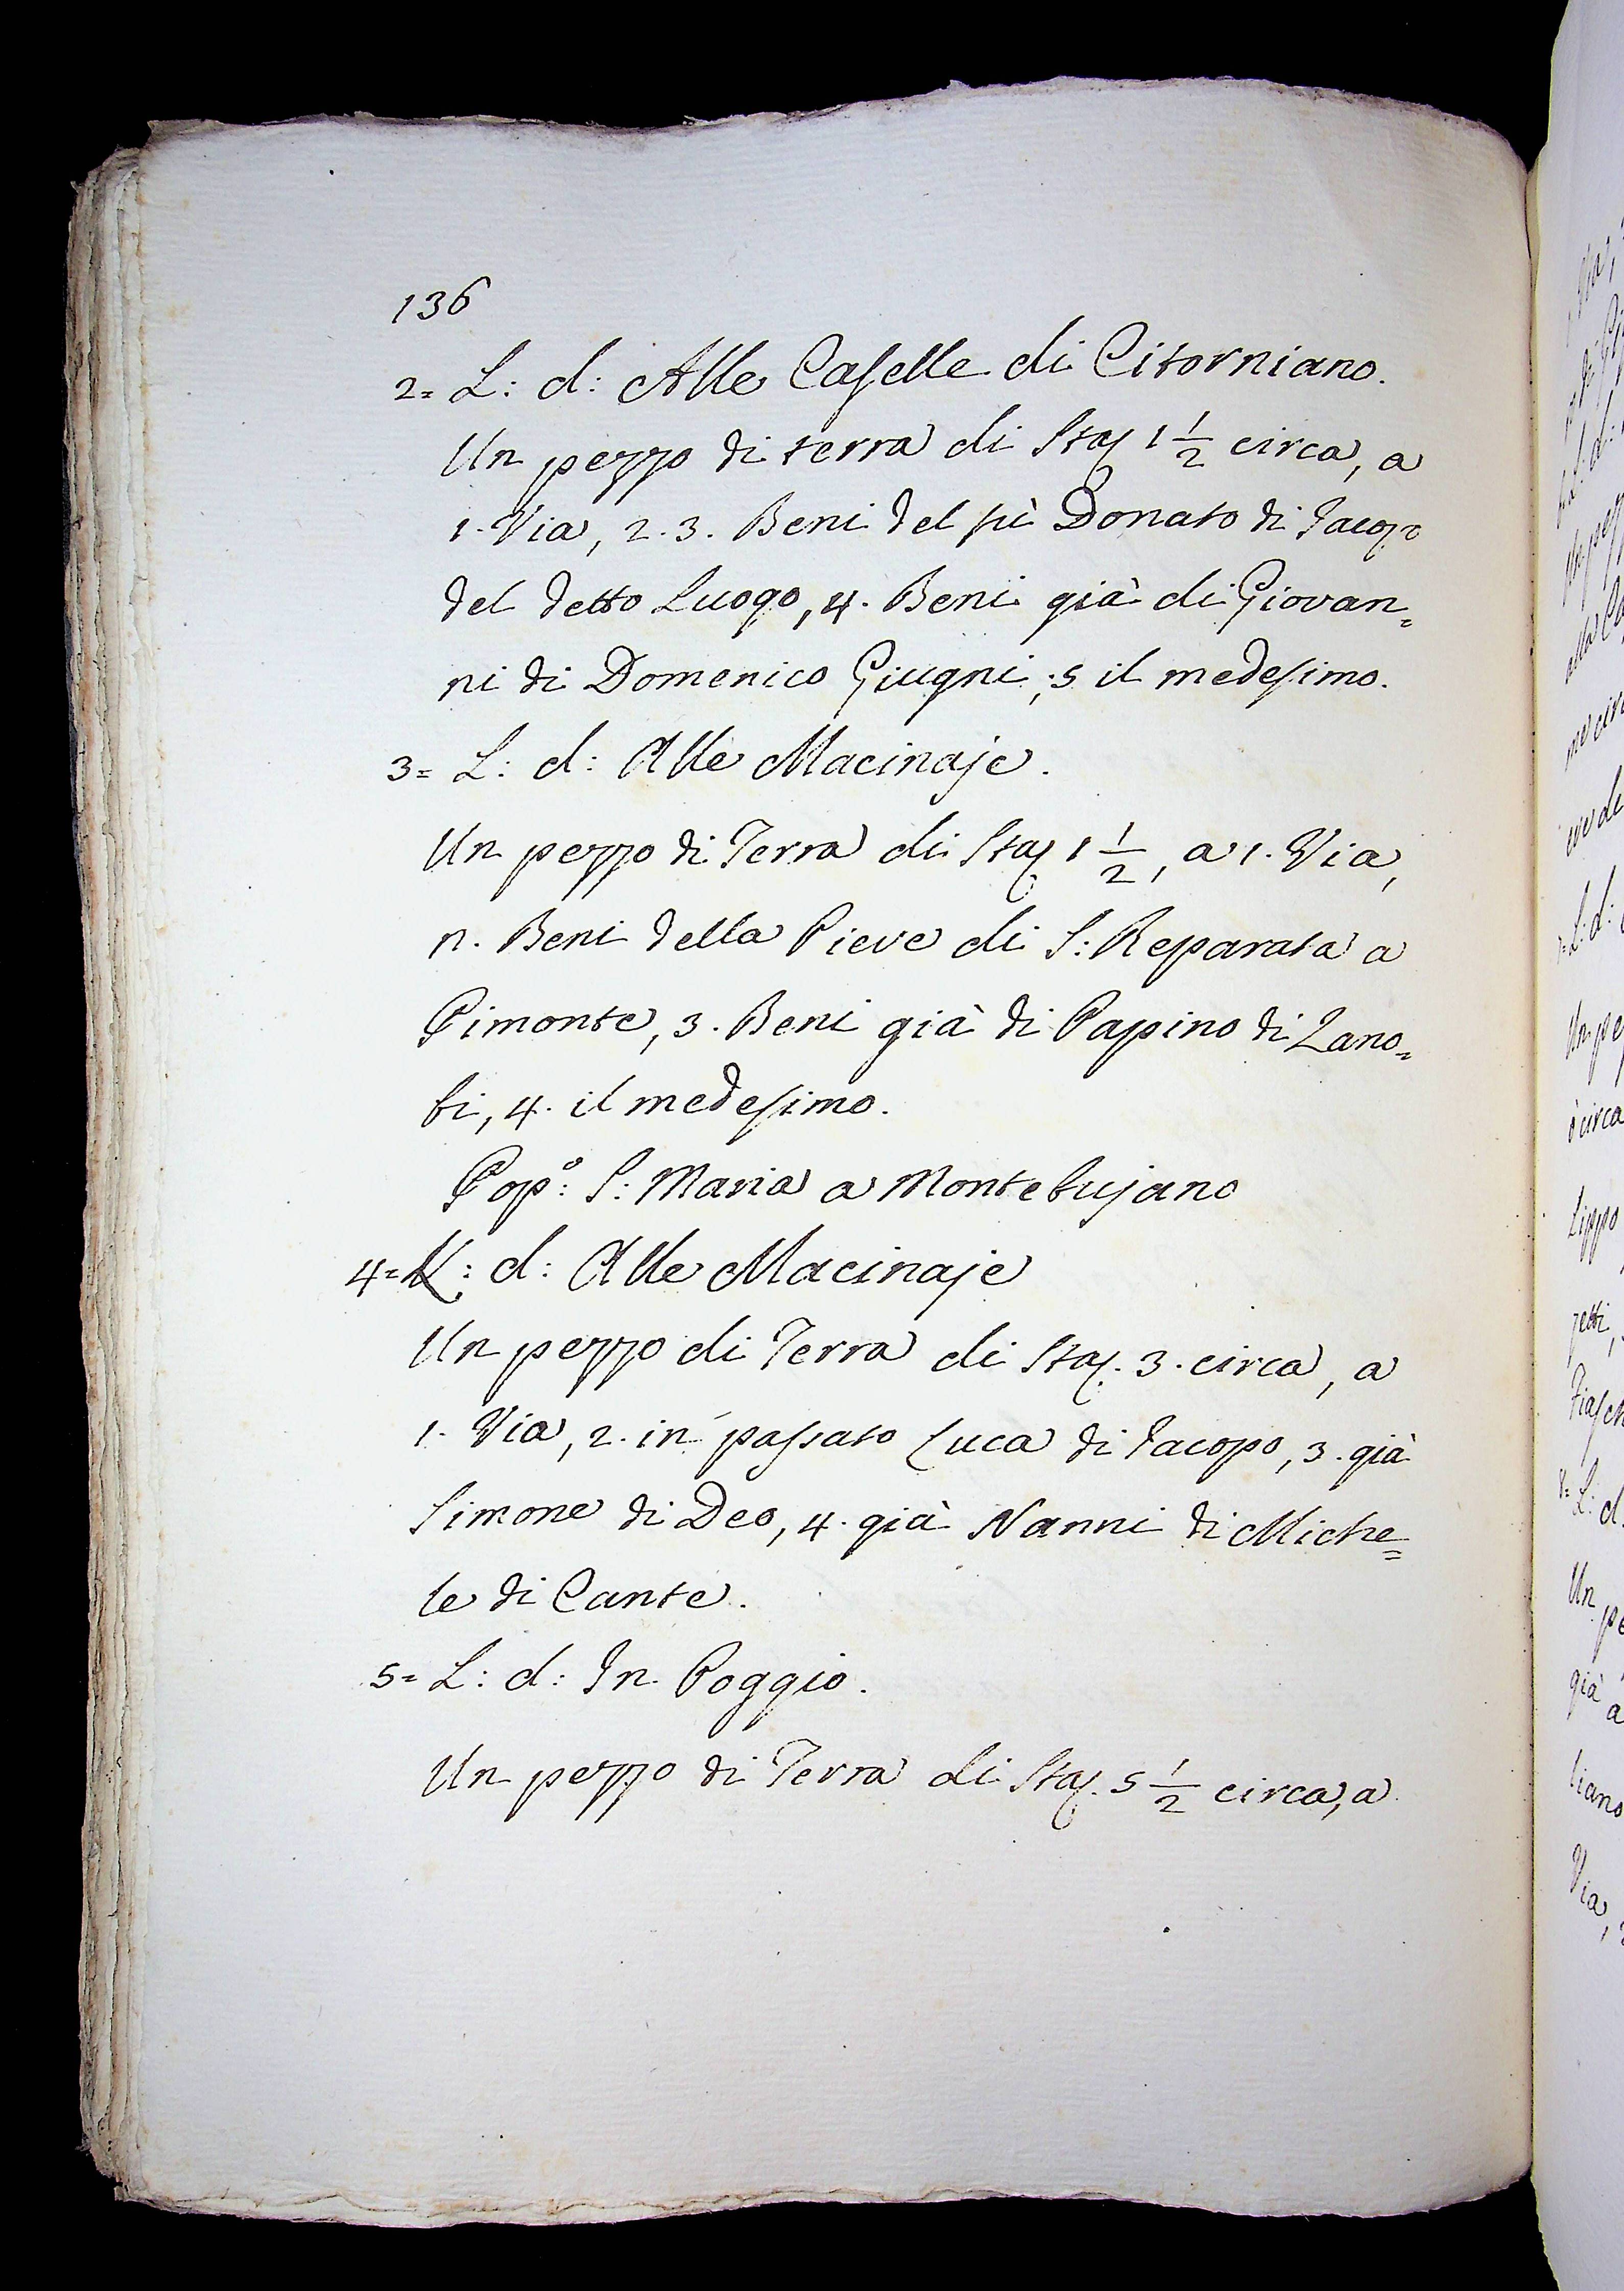 136
2= L: d: Alle Caselle di Citorniano.
Un pezzo di terra di Staj 1 1/2 circa, a
1. Via, 2. 3. Beni del fù Donato di Jacopo
del detto Luogo, 4. Beni già di Giovan=
ni di Domenico Giugni; 5 il medesimo.
3= L: d: Alle Macinaje.
Un pezzo di Terra di Staj 1 1/2, a 1. Via,
n. Beni della Pieve di S: Reparata a
Pimonte, 3. Beni già di Papino di Zano=
bi, 4. il medesimo.
Pop.º: S: Maria a Montebujano
4= L: d: Alle Macinaje
Un pezzo di Terra di Staj. 3. circa, a
1. Via, 2. in passato Luca di Jacopo, 3. già
Simone di Deo, 4. già Nanni di Miche=
le di Cante.
5= L: d: In Poggio.
Un pezzo di Terra di Staj. 5 1/2 circa, a